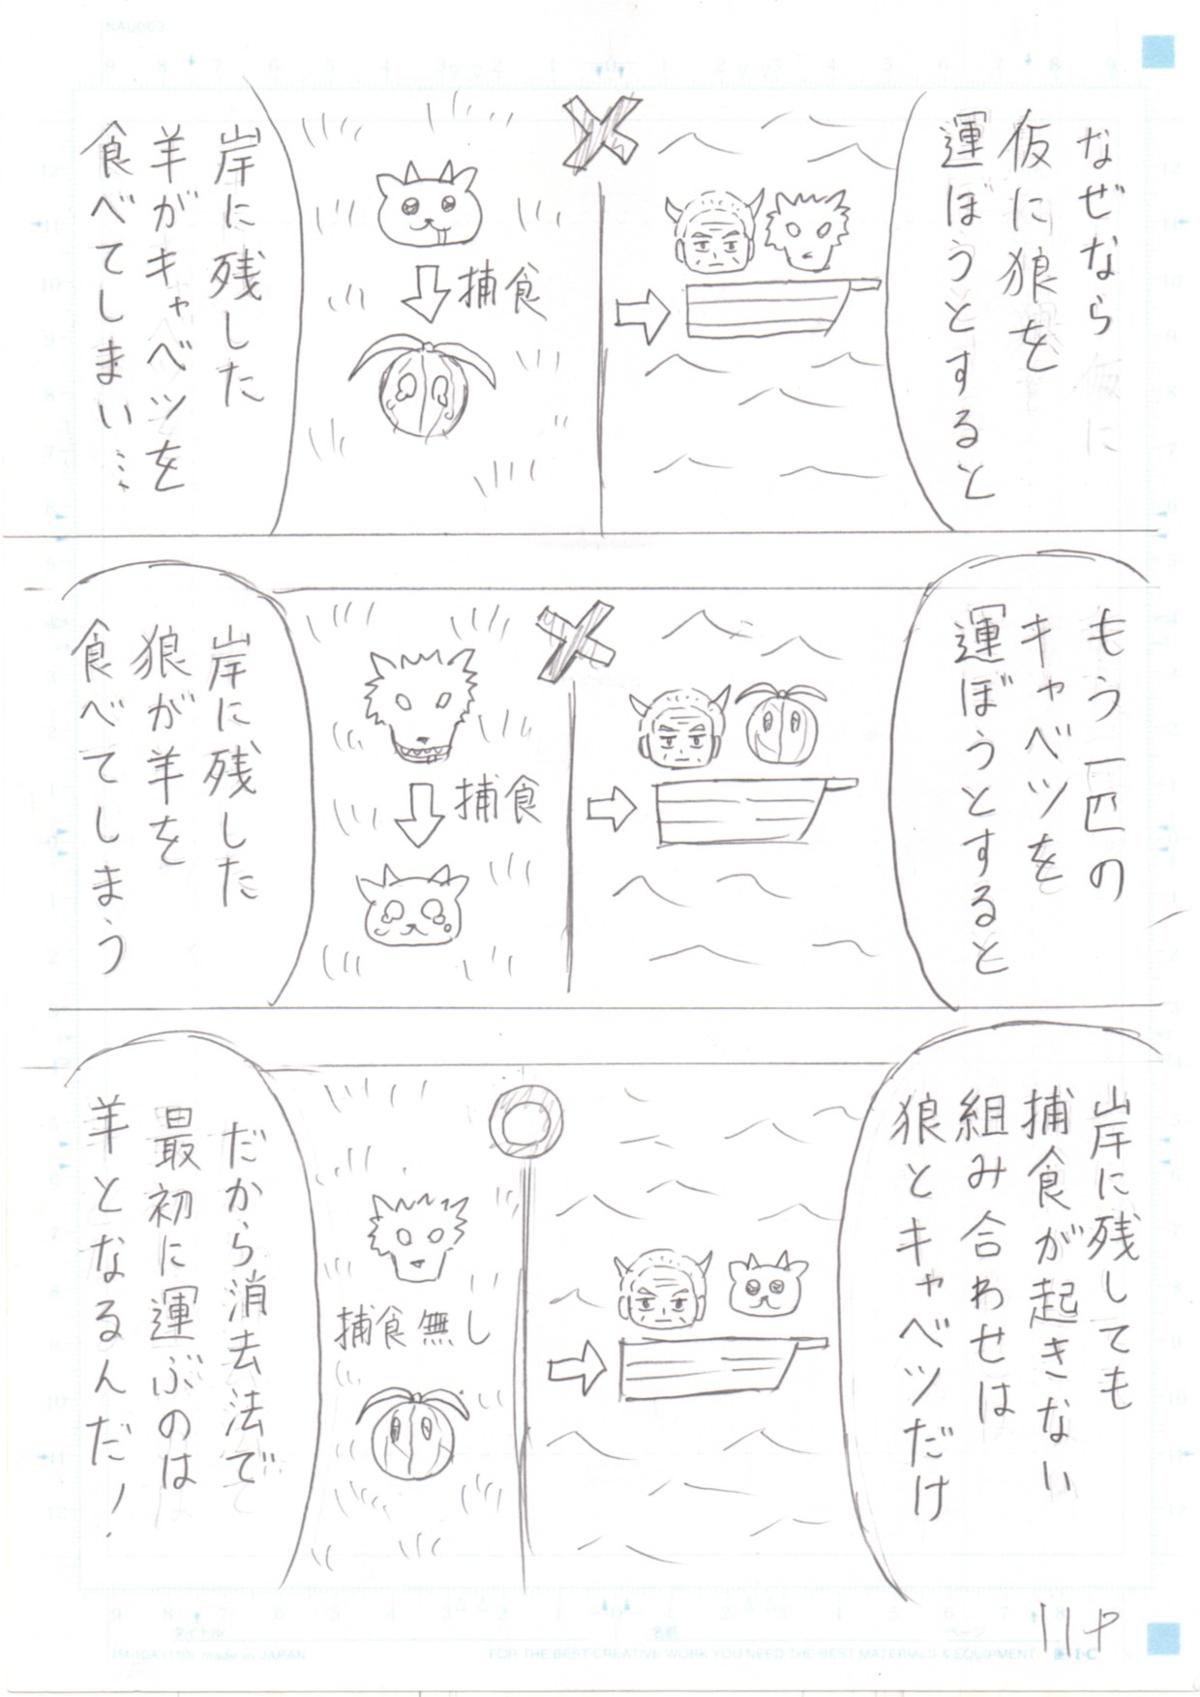 なぜなら
仮に狼を
運ぼうとすると
捕食
岸に残した
羊がキャベツを
食べてしまい…
もう一匹の
キャベツを
運ぼうとすると
捕食
岸に残した
狼が羊を
食べてしまう
岸に残しても
捕食が起きない
組み合わせは
狼とキャベツだけ
捕食無し
だから消去法で
最初に運ぶのは
羊となるんだ!
11P
タイトル
名前
ページ
made in JAPAN
FOR THE BEST CREATIVE WORK YOU NEED THE BEST MATERIALS & EQUIPMENT
I・C